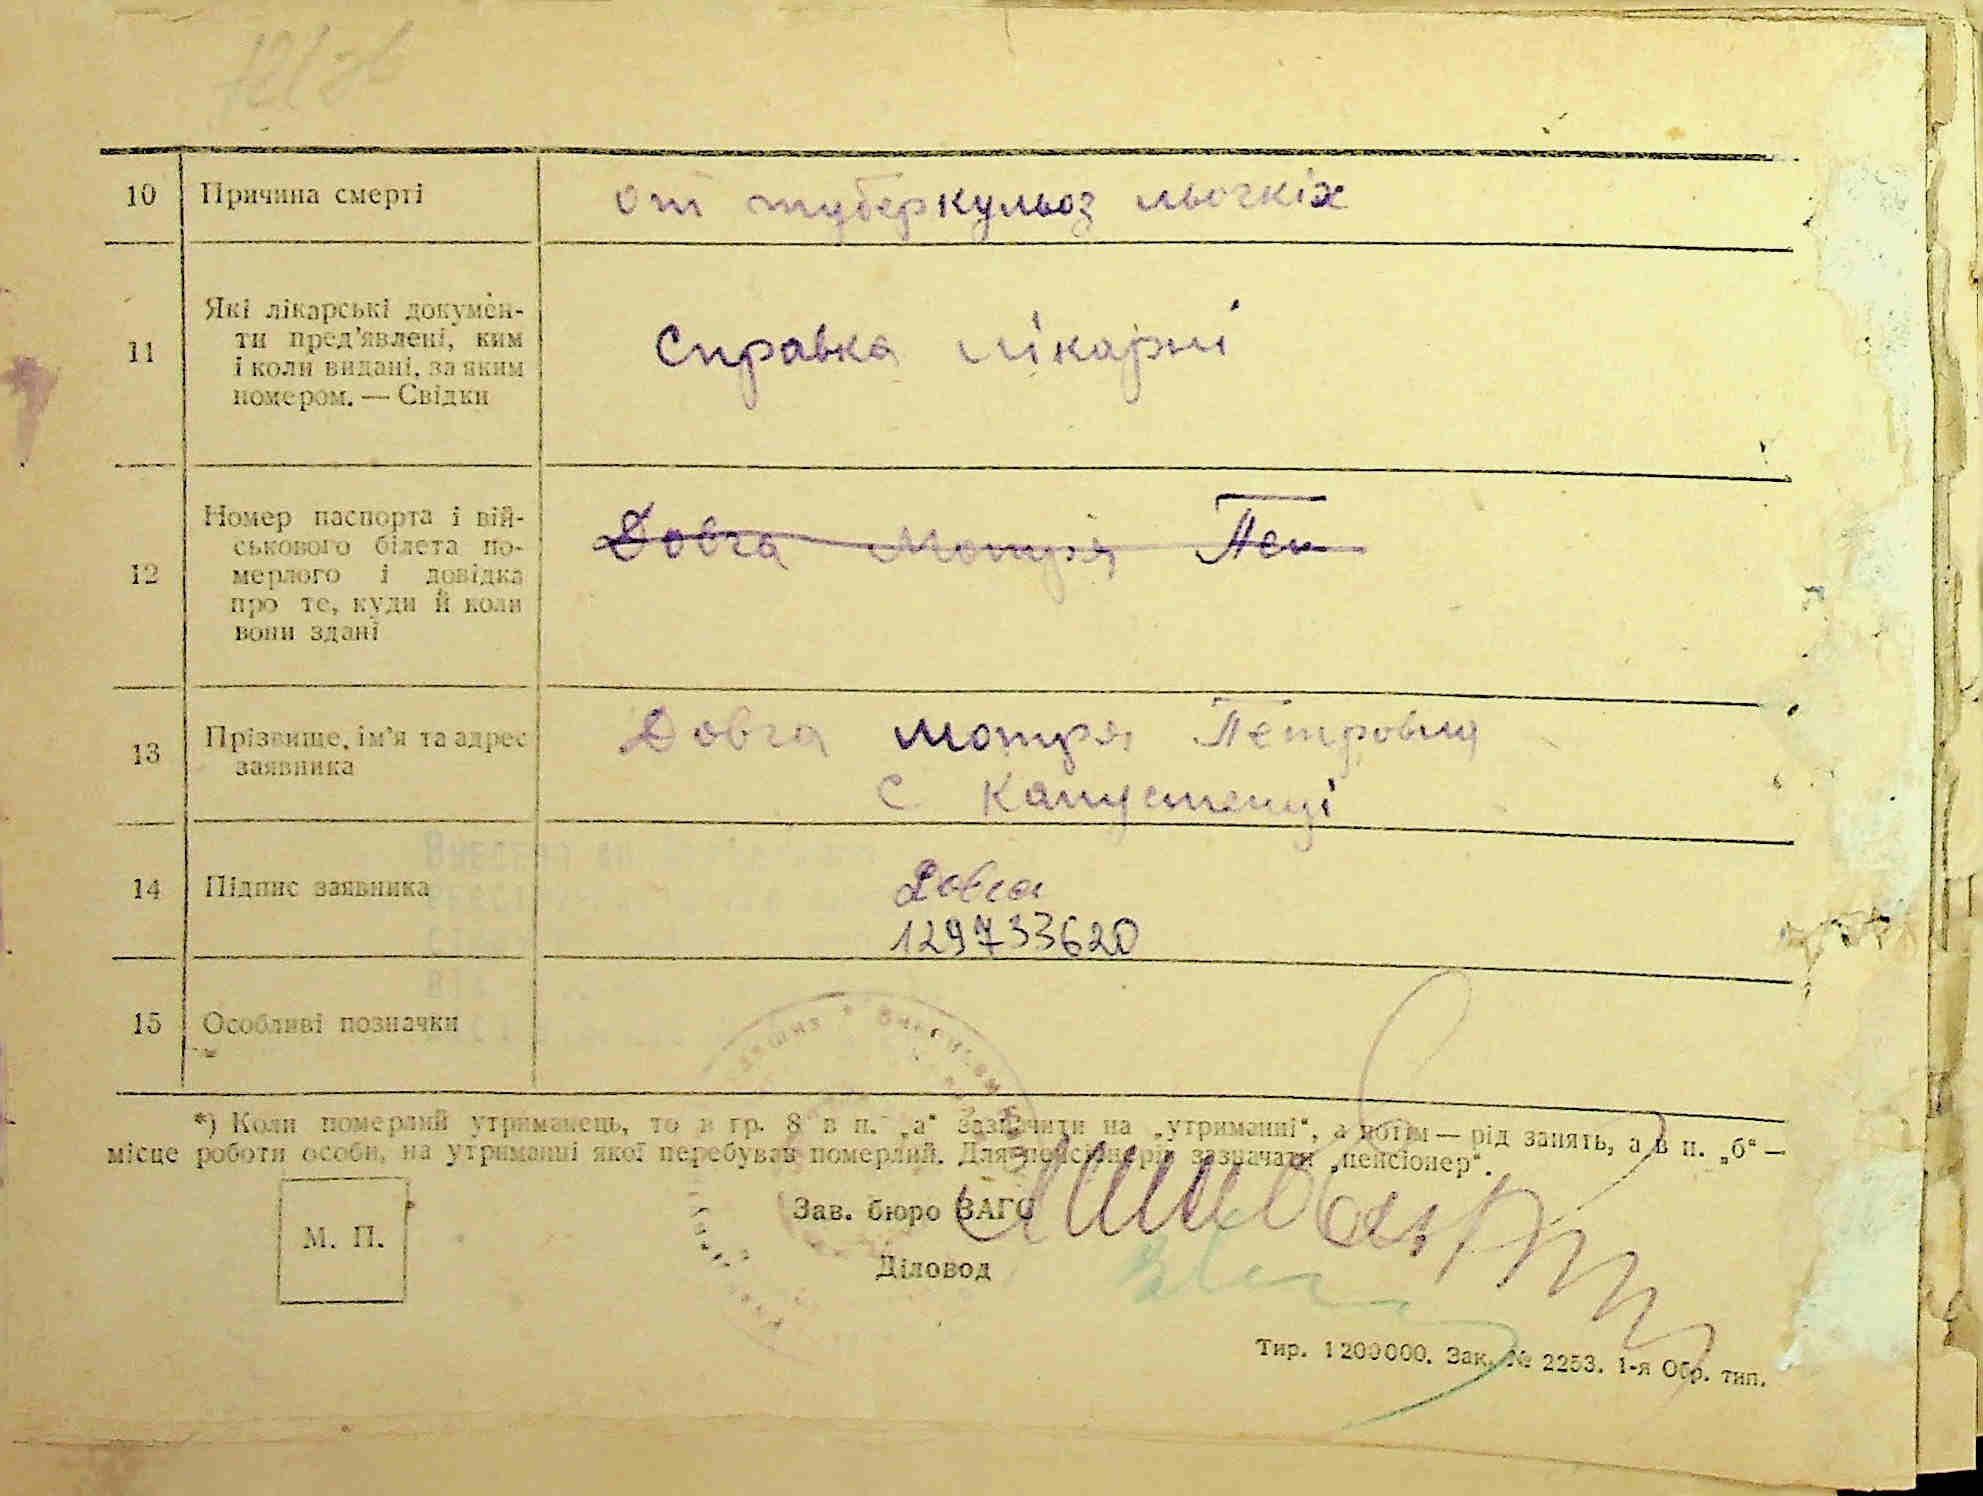 10 Причина смерті от туберкульоз льочкіх
11 Які лікарські докумен-
ти пред'явлені, ким
і коли видані, за яким
номером. — Свідки
Справка лікарні
12 Номер паспорта і вій-
ськового білета по-
мерлого і довідка
про те, куди й коли
вони здані
Довга Мотря Пен
13 Прізвище, ім'я та адрес
заявника
Довга Мотря Петровна
с. Капустенці
14 Підпис заявника Довга
129733620
15 Особливі позначки
*) Коли померлий утриманець, то в гр. 8 в п. „а“ зазначити на „утриманні“, а потім — рід занять, а в п. „б“ —
місце роботи особи, на утриманні якої перебував померлий. Для пенсіонерів зазначати „пенсіонер“.
М. П.
Зав. бюро ЗАГС
Діловод
Тир. 1200000. Зак. № 2253. 1-я Обр. тип.